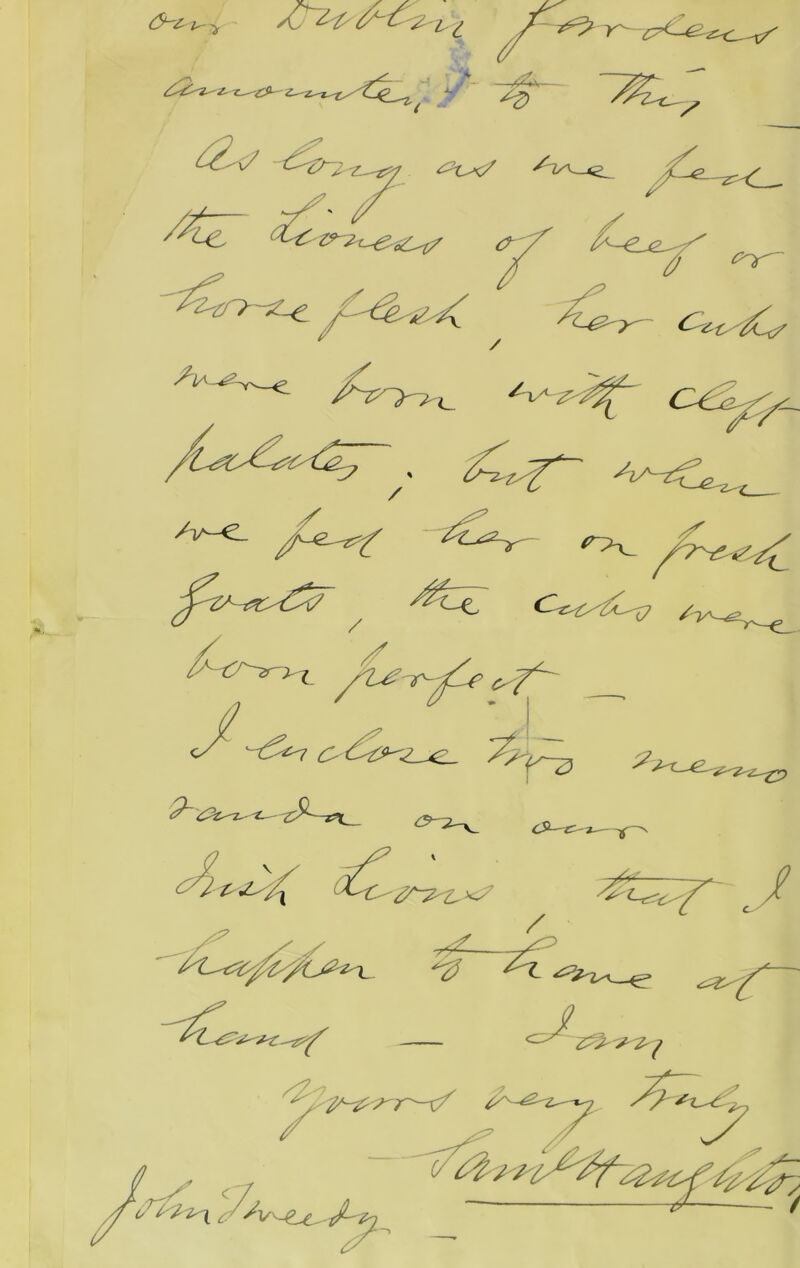 our Dublin Gardens
amounted to this —
As long as we fed
the Lioness of beef or
horse flesh, her cubs
were born with cleft
palates; but when
we fed her on fresh
goats, the cubs were
born perfect —
I enclose two memo
randa on our
Irish Lions, that I
happen to have at
hand — I am
Yours very truly
Saml Haughton
John Tweedy —